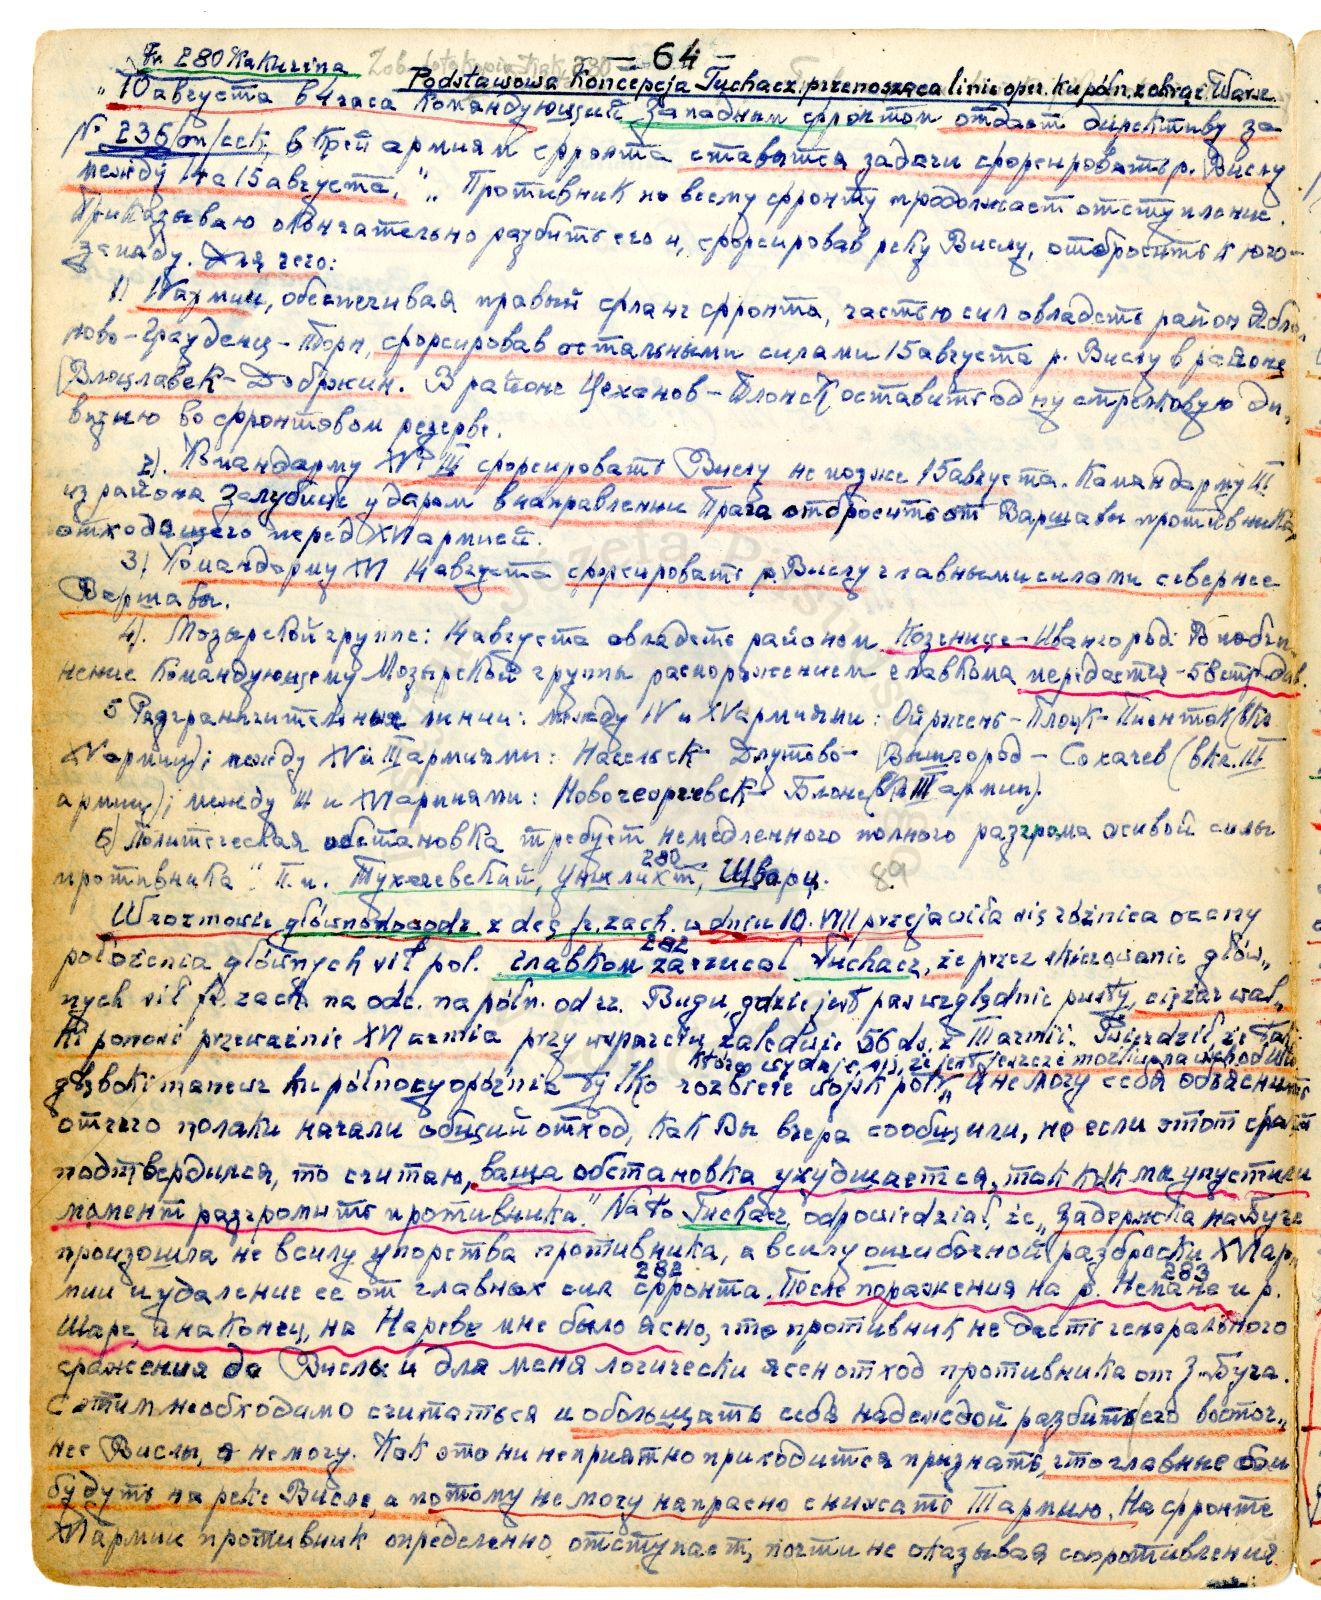 — 64 —
Fr. 280 Kakurina
Podstawowa Koncepcja Tuchacz. przenosząca linie oper. ku półn. z obrąć Warsz.
„10 августа в 4 часа Командующий Западным фронтом отдает директиву за
№ 236/оп/сек, в коей армиям фронта ставятся задачи форсировать р. Вислу
между 14 а 15 августа. „Противник по всему фронту продолжает отступление.
Приказываю окончательно разбить его и, форсировав реку Вислу, отбросить к юго-
западу. Для чего:
1) IV армии, обеспечивая правый фланг фронта, частью сил овладеть район Ябло-
ново-Грауденц-Торн, форсировав остальными силами 15 августа р. Вислу в районе
Влоцлавек-Добржин. В районе Цеханов-Плонск оставить одну стрелковую ди-
визию во фронтовом резерве.
2). Командарму XV и III форсировать Вислу не позже 15 августа. Командарму III
из района Залубице ударом в направлении Прага отбросить от Варшавы противника,
отходящего перед XVI армией.
3) Командарму XVI 14 августа форсировать р. Вислу главными силами севернее
Варшавы.
4). Мозырской группе: 14 августа овладеть районом Козенице-Ивангород. В подчи-
нение Командующему Мозырской группы распоряжением главкома передается - 58 стр. див.
5 Разграничительные линии: между IV и XV армиями: Ойржень-Плоцк-Пионтек (вкл.
XV армии); между XV и III армиями: Насельск Длутово- Вышгород - Сохачев (вкл. III
армии); между III и XVI армиями: Новогеоргиевск- Блоне (вкл III армии).
6) Политическая обстановка требует немедленного полного разгрома живой силы
противника". П.п. Тухачевский, Уншлихт, Шварц.
280
89
W rozmowie głównodowodz. z dcą fr. zach. w dniu 10. VIII przejawiła się różnica oceny
położenia głównych sił pol. главком zarzucał Tuchacz, że przez skierowanie głów-
282
nych sił fr. zach. na odc. na półn. od rz. Bugu, gdzie jest pas względnie pusty, ciężar wal-
ki ponosi przeważnie XVI armia przy wsparciu zaledwie 56 ds. z III armii. Twierdził, że taki
głęboki manewr ku północy opóźnia tylko rozbicie wojsk polsk.
które wydaje się, że jest jeszcze możliwe na wschodzie
Я не могу себе объяснить
отчего поляки начали общий отход, как Вы вчера сообщили, но если этот факт
подтвердился, то считаю, ваша обстановка ухудшается, так как мы упустили
момент разгромить противника." Na to Tuchacz. odpowiedział, że „Задержка на Буге
произошла не в силу упорства противника, а в силу ошибочной разброски XVI ар-
мии и удаление ее от главных сил фронта. После поражения на р. Немане и р.
282 283
Шаре, и наконец, на Нареве мне было ясно, что противник не даст генерального
сражения до Вислы и для меня логически ясен отход противника от З. Буга.
С этим необходимо считаться и обольщать себя надеждой разбить его восточ-
нее Вислы, я не могу. Как это ни неприятно приходится признать, что главные бои
будут на реке Висле, а потому не могу напрасно снижать III армию. На фронте
XVI армии противник определенно отступает, почти не оказывая сопротивления